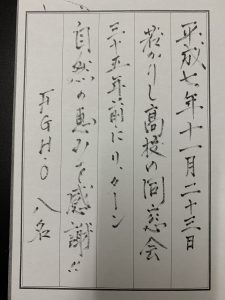 平成七年十一月二十三日
若かりし高校の同窓会
三十五年前にリターン
自然の恵みを感謝〃
F.G.H.O 八名